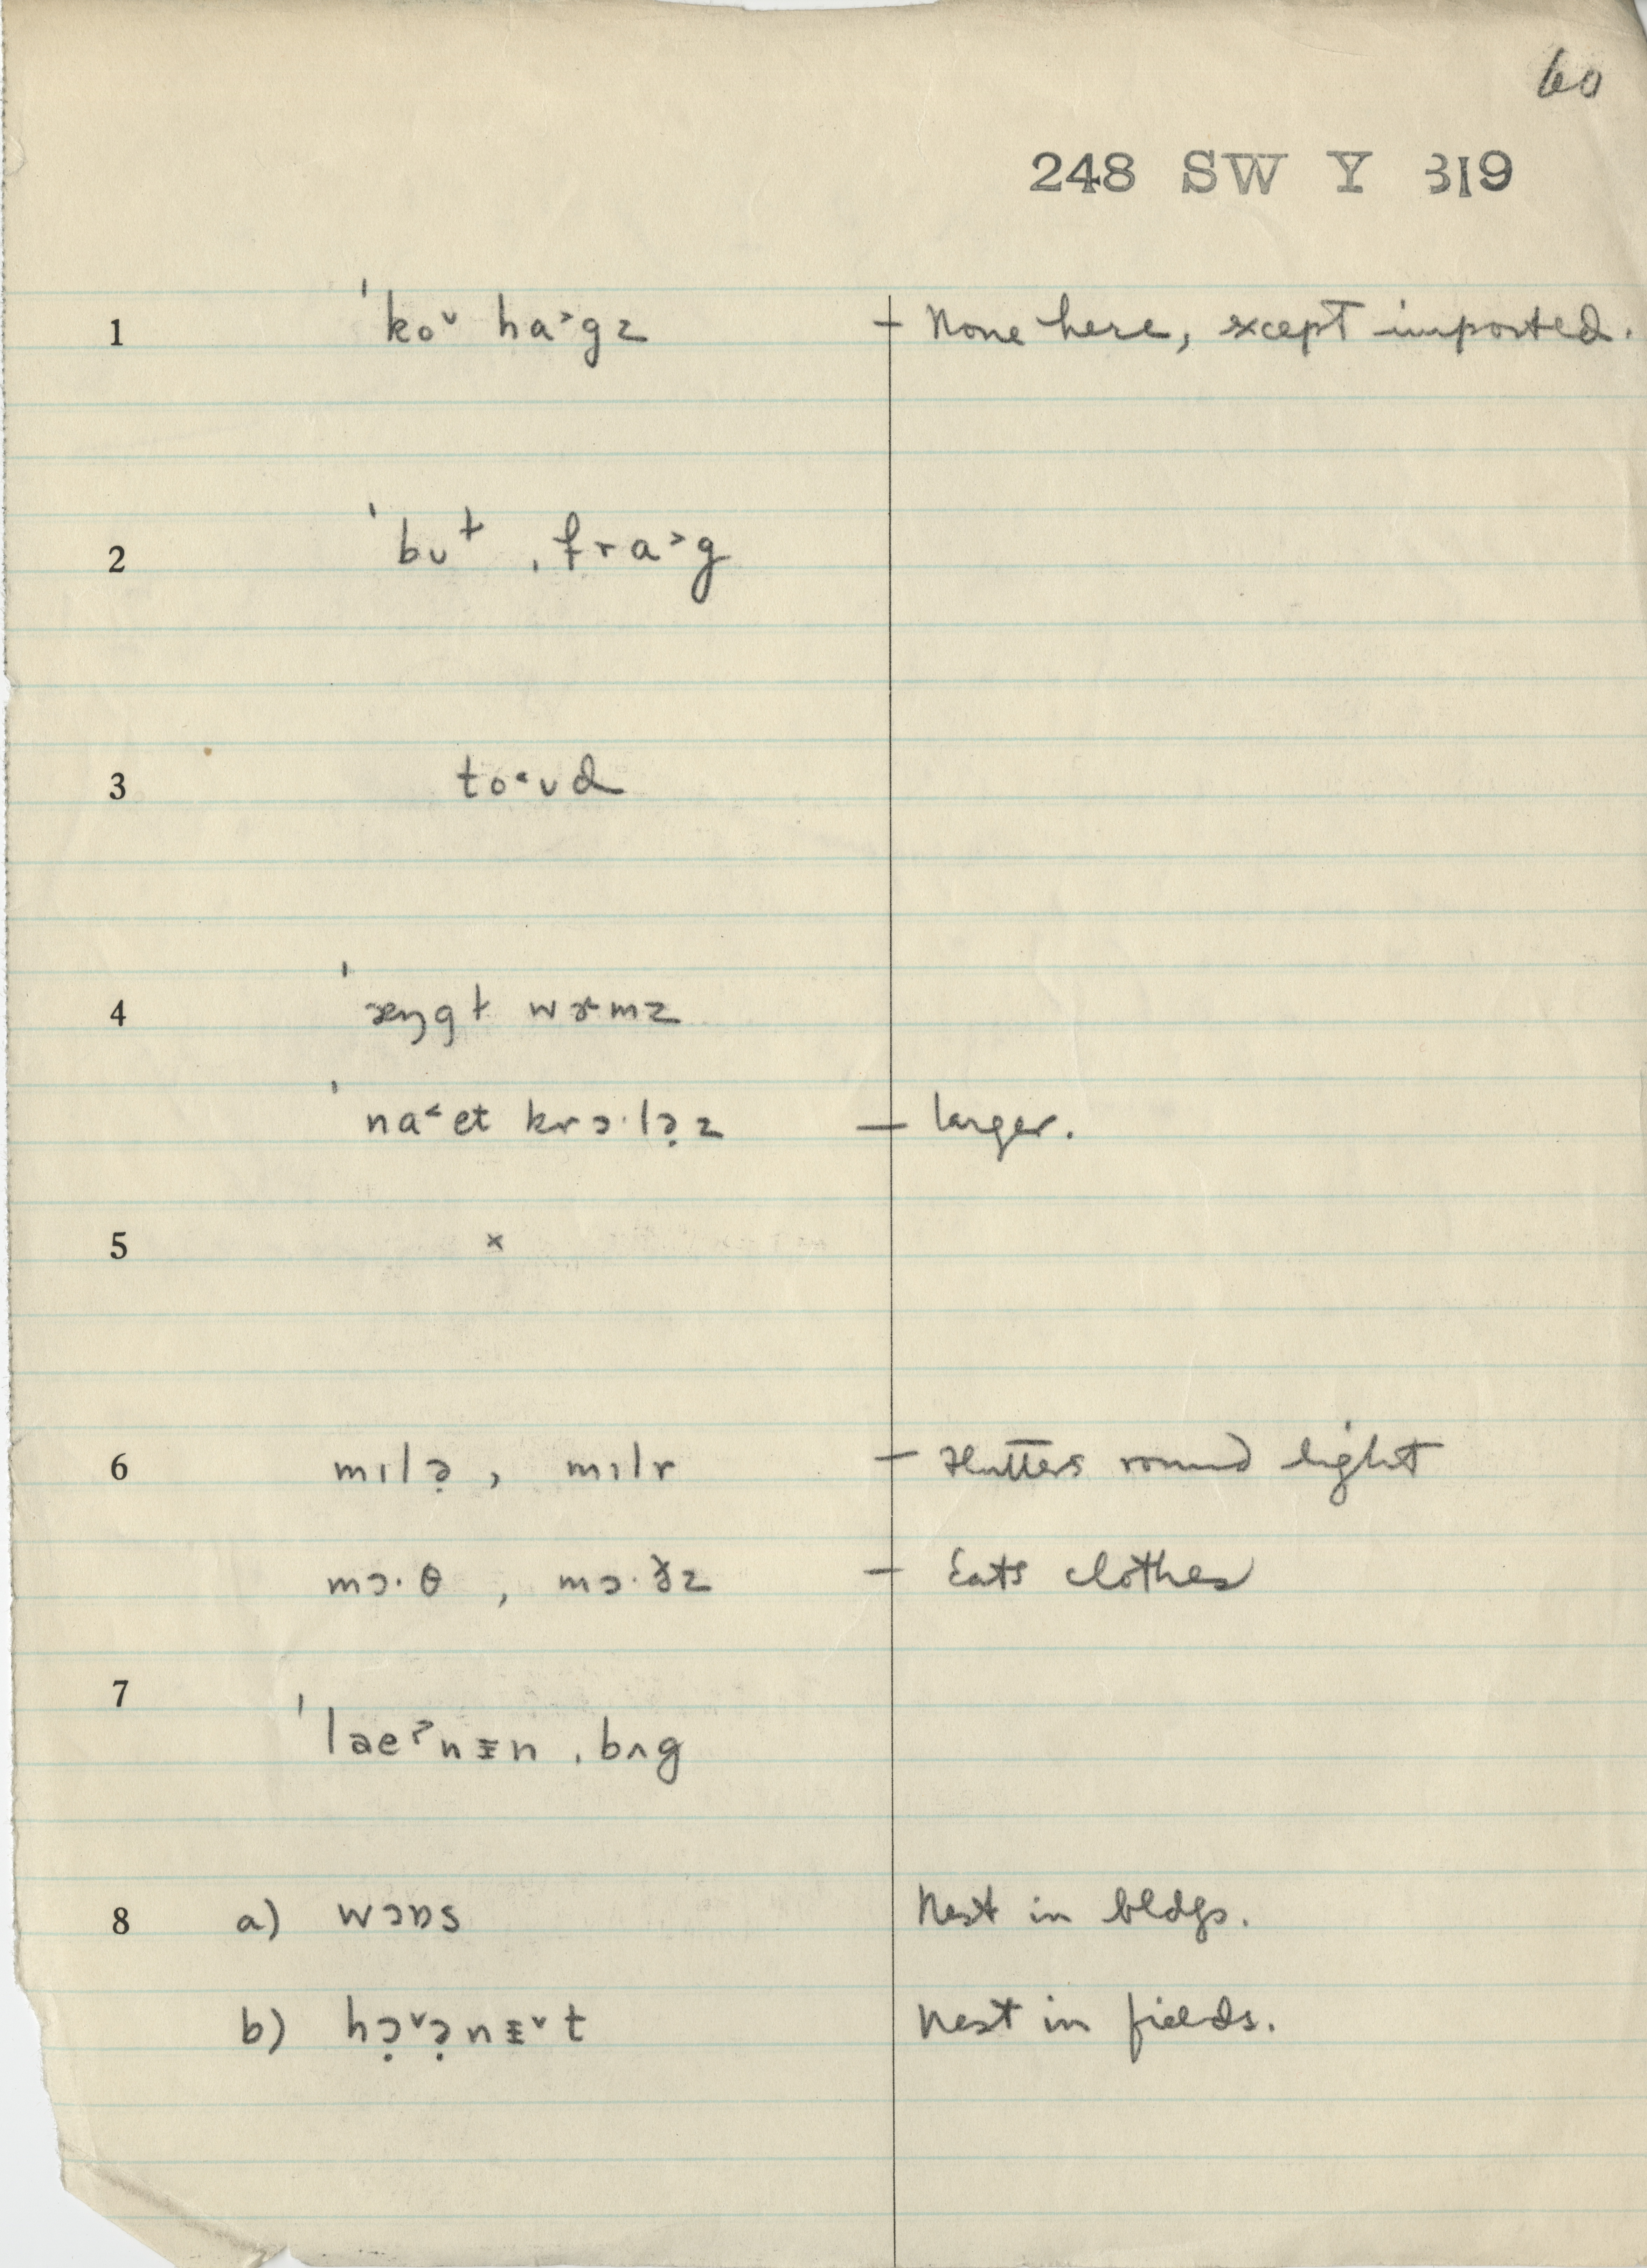 60
248 SW Y 319
1 ˈkoᵛ ha˃gz – None here, except imported.
2 ˈbʊɫ ˌfra˃g
3 to˂ʊd
4 ˈæŋgɫ wɚmz
ˈna˂et krɔ·lə̣z – larger.
5 ×
6 mɪlə̣, mɪlr – Flutters round light
mɔ·θ, mɔ·ðz – Eats clothes
7 ˈlaeˀnɪ̵n ˌbʌg
8 a) wɔɒs Nest in bldgs.
b) hɔ̣ᵛə̣nɪ̵ᵛt Nest in fields.